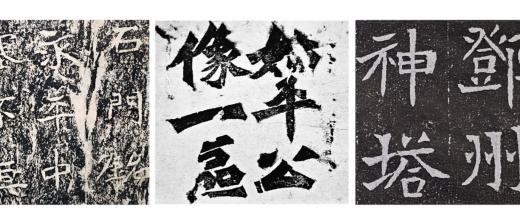 石門銘
永平中
始平公
像一區
鄧州
神塔